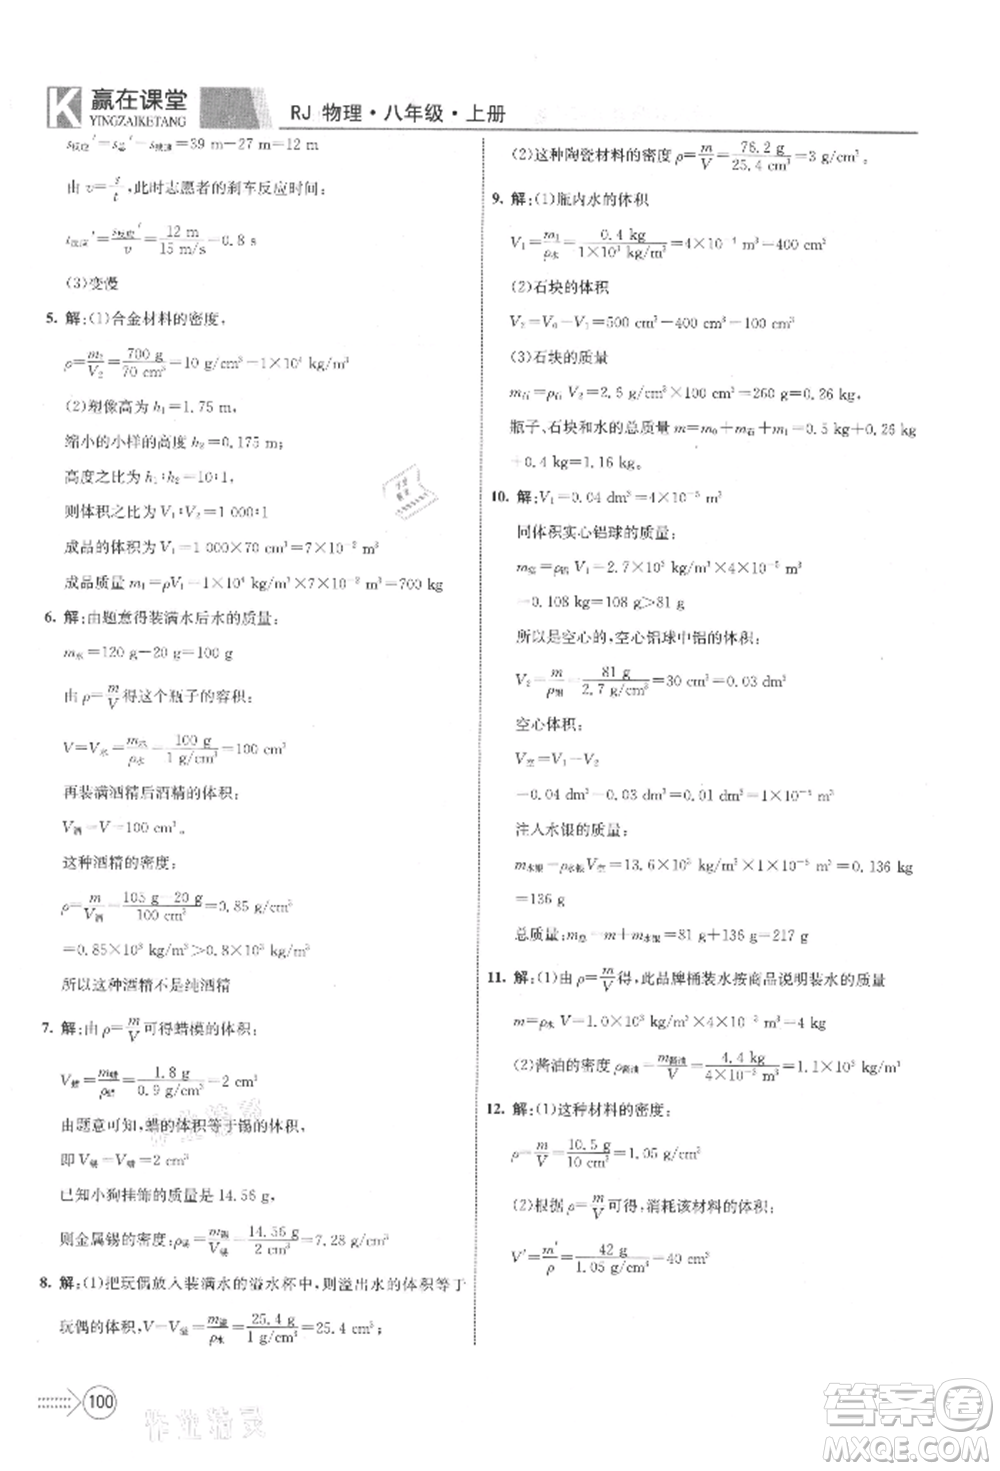 K 赢在课堂
YINGZAIKETANG
RJ 物理·八年级·上册
s反应′=s总′-s制动′=39 m-27 m=12 m
由 v=s/t,此时志愿者的刹车反应时间:
t反应′=s反应′/v=12 m/15 m/s=0.8 s
(3)变慢
5. 解:(1)合金材料的密度,
ρ=m2/V2=700 g/70 cm³=10 g/cm³=1×10⁴ kg/m³
(2)塑像高为 h1=1.75 m,
缩小的小样的高度 h2=0.175 m;
高度之比为 h1:h2=10:1,
则体积之比为 V1:V2=1 000:1
成品的体积为 V1=1 000×70 cm³=7×10⁻² m³
成品质量 m1=ρV1=1×10⁴ kg/m³×7×10⁻² m³=700 kg
6. 解:由题意得装满水后水的质量:
m水=120 g-20 g=100 g
由 ρ=m/V 得这个瓶子的容积:
V=V水=m水/ρ水=100 g/1 g/cm³=100 cm³
再装满酒精后酒精的体积:
V酒=V=100 cm³。
这种酒精的密度:
ρ=m/V酒=105 g-20 g/100 cm³=0.85 g/cm³
=0.85×10³ kg/m³>0.8×10³ kg/m³
所以这种酒精不是纯酒精
7. 解:由 ρ=m/V 可得蜡模的体积:
V蜡=m蜡/ρ蜡=1.8 g/0.9 g/cm³=2 cm³
由题意可知,蜡的体积等于锡的体积,
即 V锡=V蜡=2 cm³
已知小狗挂饰的质量是 14.56 g,
则金属锡的密度:ρ锡=m锡/V锡=14.56 g/2 cm³=7.28 g/cm³
8. 解:(1)把玩偶放入装满水的溢水杯中,则溢出水的体积等于
玩偶的体积,V=V溢=m溢/ρ水=25.4 g/1 g/cm³=25.4 cm³
(2)这种陶瓷材料的密度 ρ=m/V=76.2 g/25.4 cm³=3 g/cm³;
9. 解:(1)瓶内水的体积
V1=m1/ρ水=0.4 kg/1×10³ kg/m³=4×10⁻⁴ m³=400 cm³
(2)石块的体积
V2=V0-V1=500 cm³-400 cm³=100 cm³
(3)石块的质量
m石=ρ石 V2=2.6 g/cm³×100 cm³=260 g=0.26 kg
瓶子、石块和水的总质量 m=m0+m石+m1=0.5 kg+0.26 kg
+0.4 kg=1.16 kg。
10. 解:V1=0.04 dm³=4×10⁻⁵ m³
同体积实心铝球的质量:
m实=ρ铝 V1=2.7×10³ kg/m³×4×10⁻⁵ m³
=0.108 kg=108 g>81 g
所以是空心的,空心铝球中铝的体积:
V2=m/ρ铝=81 g/2.7 g/cm³=30 cm³=0.03 dm³
空心体积:
V空=V1-V2
=0.04 dm³-0.03 dm³=0.01 dm³=1×10⁻⁵ m³
注入水银的质量:
m水银=ρ水银V空=13.6×10³ kg/m³×1×10⁻⁵ m³=0.136 kg
=136 g
总质量:m总=m+m水银=81 g+136 g=217 g
11. 解:(1)由 ρ=m/V 得,此品牌桶装水按商品说明装水的质量
m=ρ水 V=1.0×10³ kg/m³×4×10⁻³ m³=4 kg
(2)酱油的密度 ρ酱油=m酱油/V=4.4 kg/4×10⁻³ m³=1.1×10³ kg/m³
12. 解:(1)这种材料的密度:
ρ=m/V=10.5 g/10 cm³=1.05 g/cm³
(2)根据 ρ=m/V 可得,消耗该材料的体积:
V′=m′/ρ=42 g/1.05 g/cm³=40 cm³
100
作业精灵
答案卷
MXQE.COM